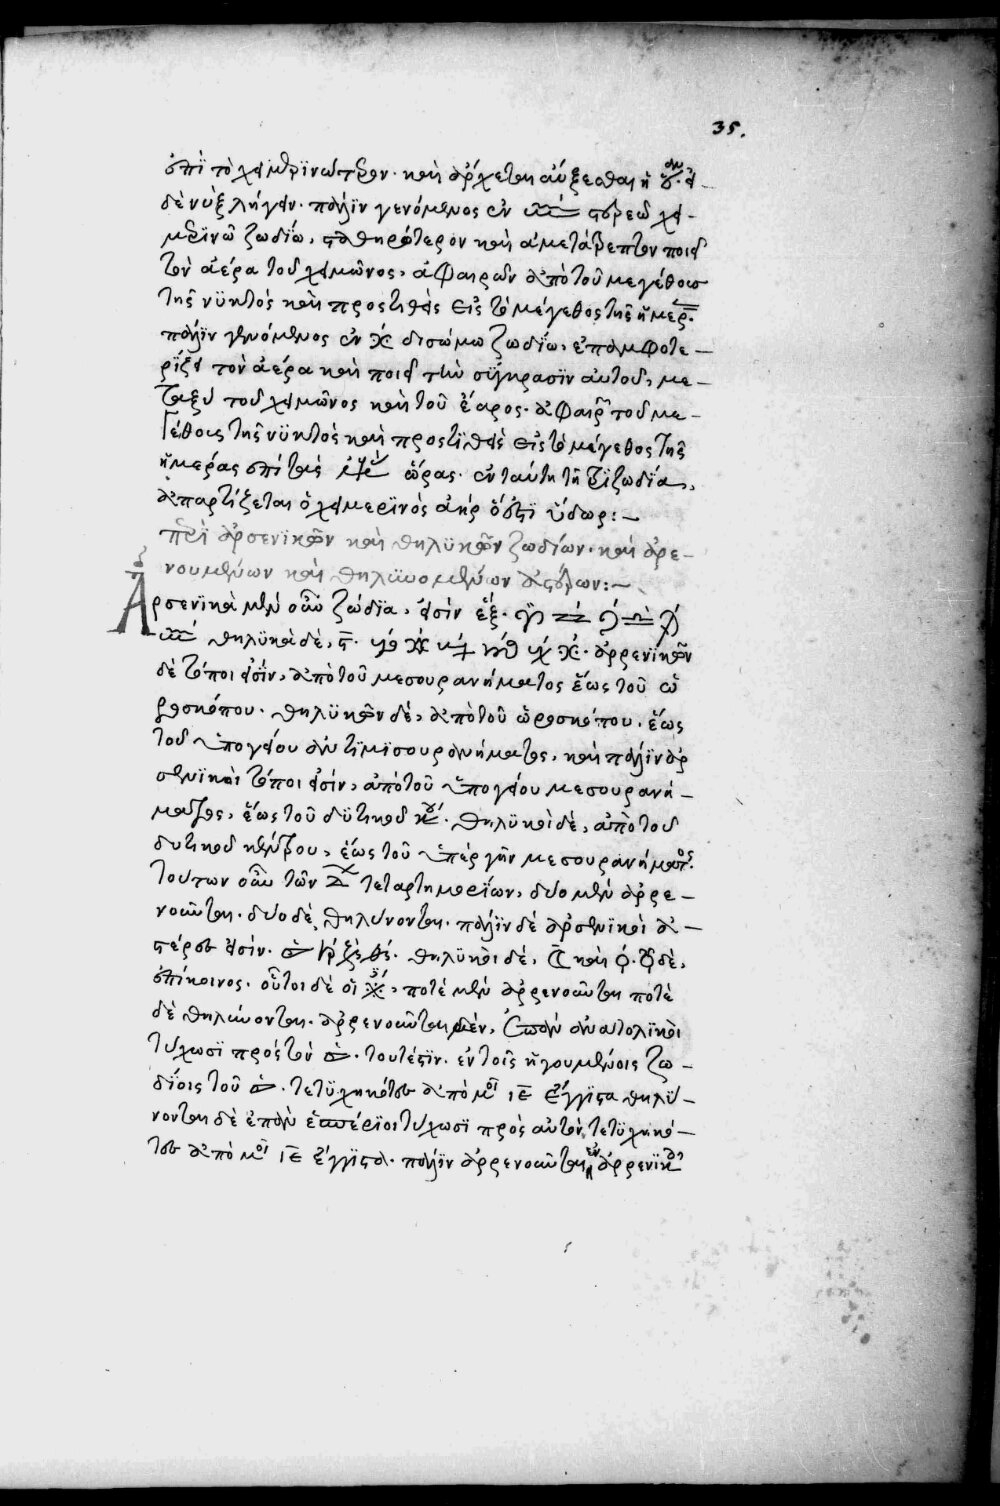 35.
ἐπὶ τὸ χειμερϊνώτερον. καὶ ἄρχεται αὔξεσθαι ἡ ἡ
δὲ νὺξ λήγειν. πάλϊν γενόμενος ἐν ♒ στερεῶ χει-
μερϊνῶ ζωδίω, σταθηρότερον καὶ ἀμετάτρεπτον ποιεῖ
τὸν ἀέρα τοῦ χειμῶνος, ἀφαιρῶν ἀπὸ τοῦ μεγέθους
τῆς νϋκτὸς καὶ προστιθεὶς εἰς τὸ μέγεθος τῆς ἡμέρ.
πάλϊν γενόμενος ἐν ♓ δισώμω ζωδίω, ἐπαμφοτε-
ρίζει τὸν ἀέρα καὶ ποιεῖ τὴν σύγκρασϊν αὐτοῦ, με-
ταξὺ τοῦ χειμῶνος καὶ τοῦ ἔαρος. ἀφαιρεῖ τοῦ με-
γέθους τῆς νϋκτὸς καὶ προστϊθεὶς εἰς τὸ μέγεθος τῆς
ἡμέρας ἐπὶ τὰς ὥρας. ἐν ταύτη τῆ τριζωδία,
ἀπαρτίζεται ὁ χειμερϊνὸς ἀὴρ ὅ ἐστϊ ὕδωρ:-
περὶ ἀρσενϊκῶν καὶ θηλϋκῶν ζωδίων. καὶ ἀρε-
νουμένων καὶ θηλϋνομένων ἀστέρων:-
Ἀρσενϊκὰ μὲν οὖν ζώδϊα, εἰσὶν ἕξ. ♈ ♊ ♌ ♎ ♐
♒ θηλϋκὰ δὲ, ϛ. ♉ ♋ ♍ ♏ ♑ ♓. ἀρρενϊκῶν
δὲ τόποι εἰσΐν, ἀπὸ τοῦ μεσουρανήματος ἕως τοῦ ὡ
ροσκόπου. θηλϋκῶν δὲ, ἀπὸ τοῦ ὡροσκόπου, ἕως
τοῦ ὑπογείου ἀντϊμεσουρανήματος, καὶ πάλϊν ἀρ
σενϊκοὶ τόποι εἰσὶν, ἀπὸ τοῦ ὑπογείου μεσουρανή-
ματος, ἕως τοῦ δϋτικοῦ. θηλϋκοὶ δὲ, ἀπὸ τοῦ
δυτικοῦ κέντρου, ἕως τοῦ ὑπὲρ γῆν μεσουρανήματος.
τούτων οὖν τῶν τεταρτημορίων, δύο μὲν ἀρρε-
νοῦνται. δύο δὲ θηλύνονται. πάλϊν δὲ ἀρσενϊκοὶ ἀ-
στέρες εἰσΐν. ☉ ♄ ♃ ♂. θηλϋκοὶ δὲ, ☾ καὶ ♀. ☿ δὲ,
ἐπίκοινος. οὗτοι δὲ οἱ, ποτὲ μὲν ἀρρενοῦνται ποτὲ
δὲ θηλύνονται. ἀρρενοῦνται μὲν, ὅταν ἀνατολϊκοὶ
τύχωσϊ πρὸς τὸν ☉. τουτέστϊν. ἐν τοῖς ἡγουμένοις ζω-
δΐοις τοῦ ☉. τετϋχηκότες ἀπὸ μοῖ ιε ἔγγϊστα θηλϋ-
νονται δὲ ἐπὰν ἑσπέριοι τύχωσϊ πρὸς αὐτὸν, τετϋχηκό-
τες ἀπὸ μοῖ ιε ἔγγϊστα. πάλϊν ἀρρενοῦνται ἐν ἀρρενϊκ